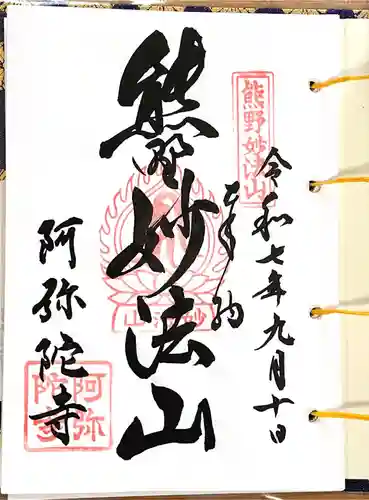 令和七年九月十日
熊野妙法山
奉納
熊野妙法山
妙法山
阿弥陀寺
阿弥
陀寺